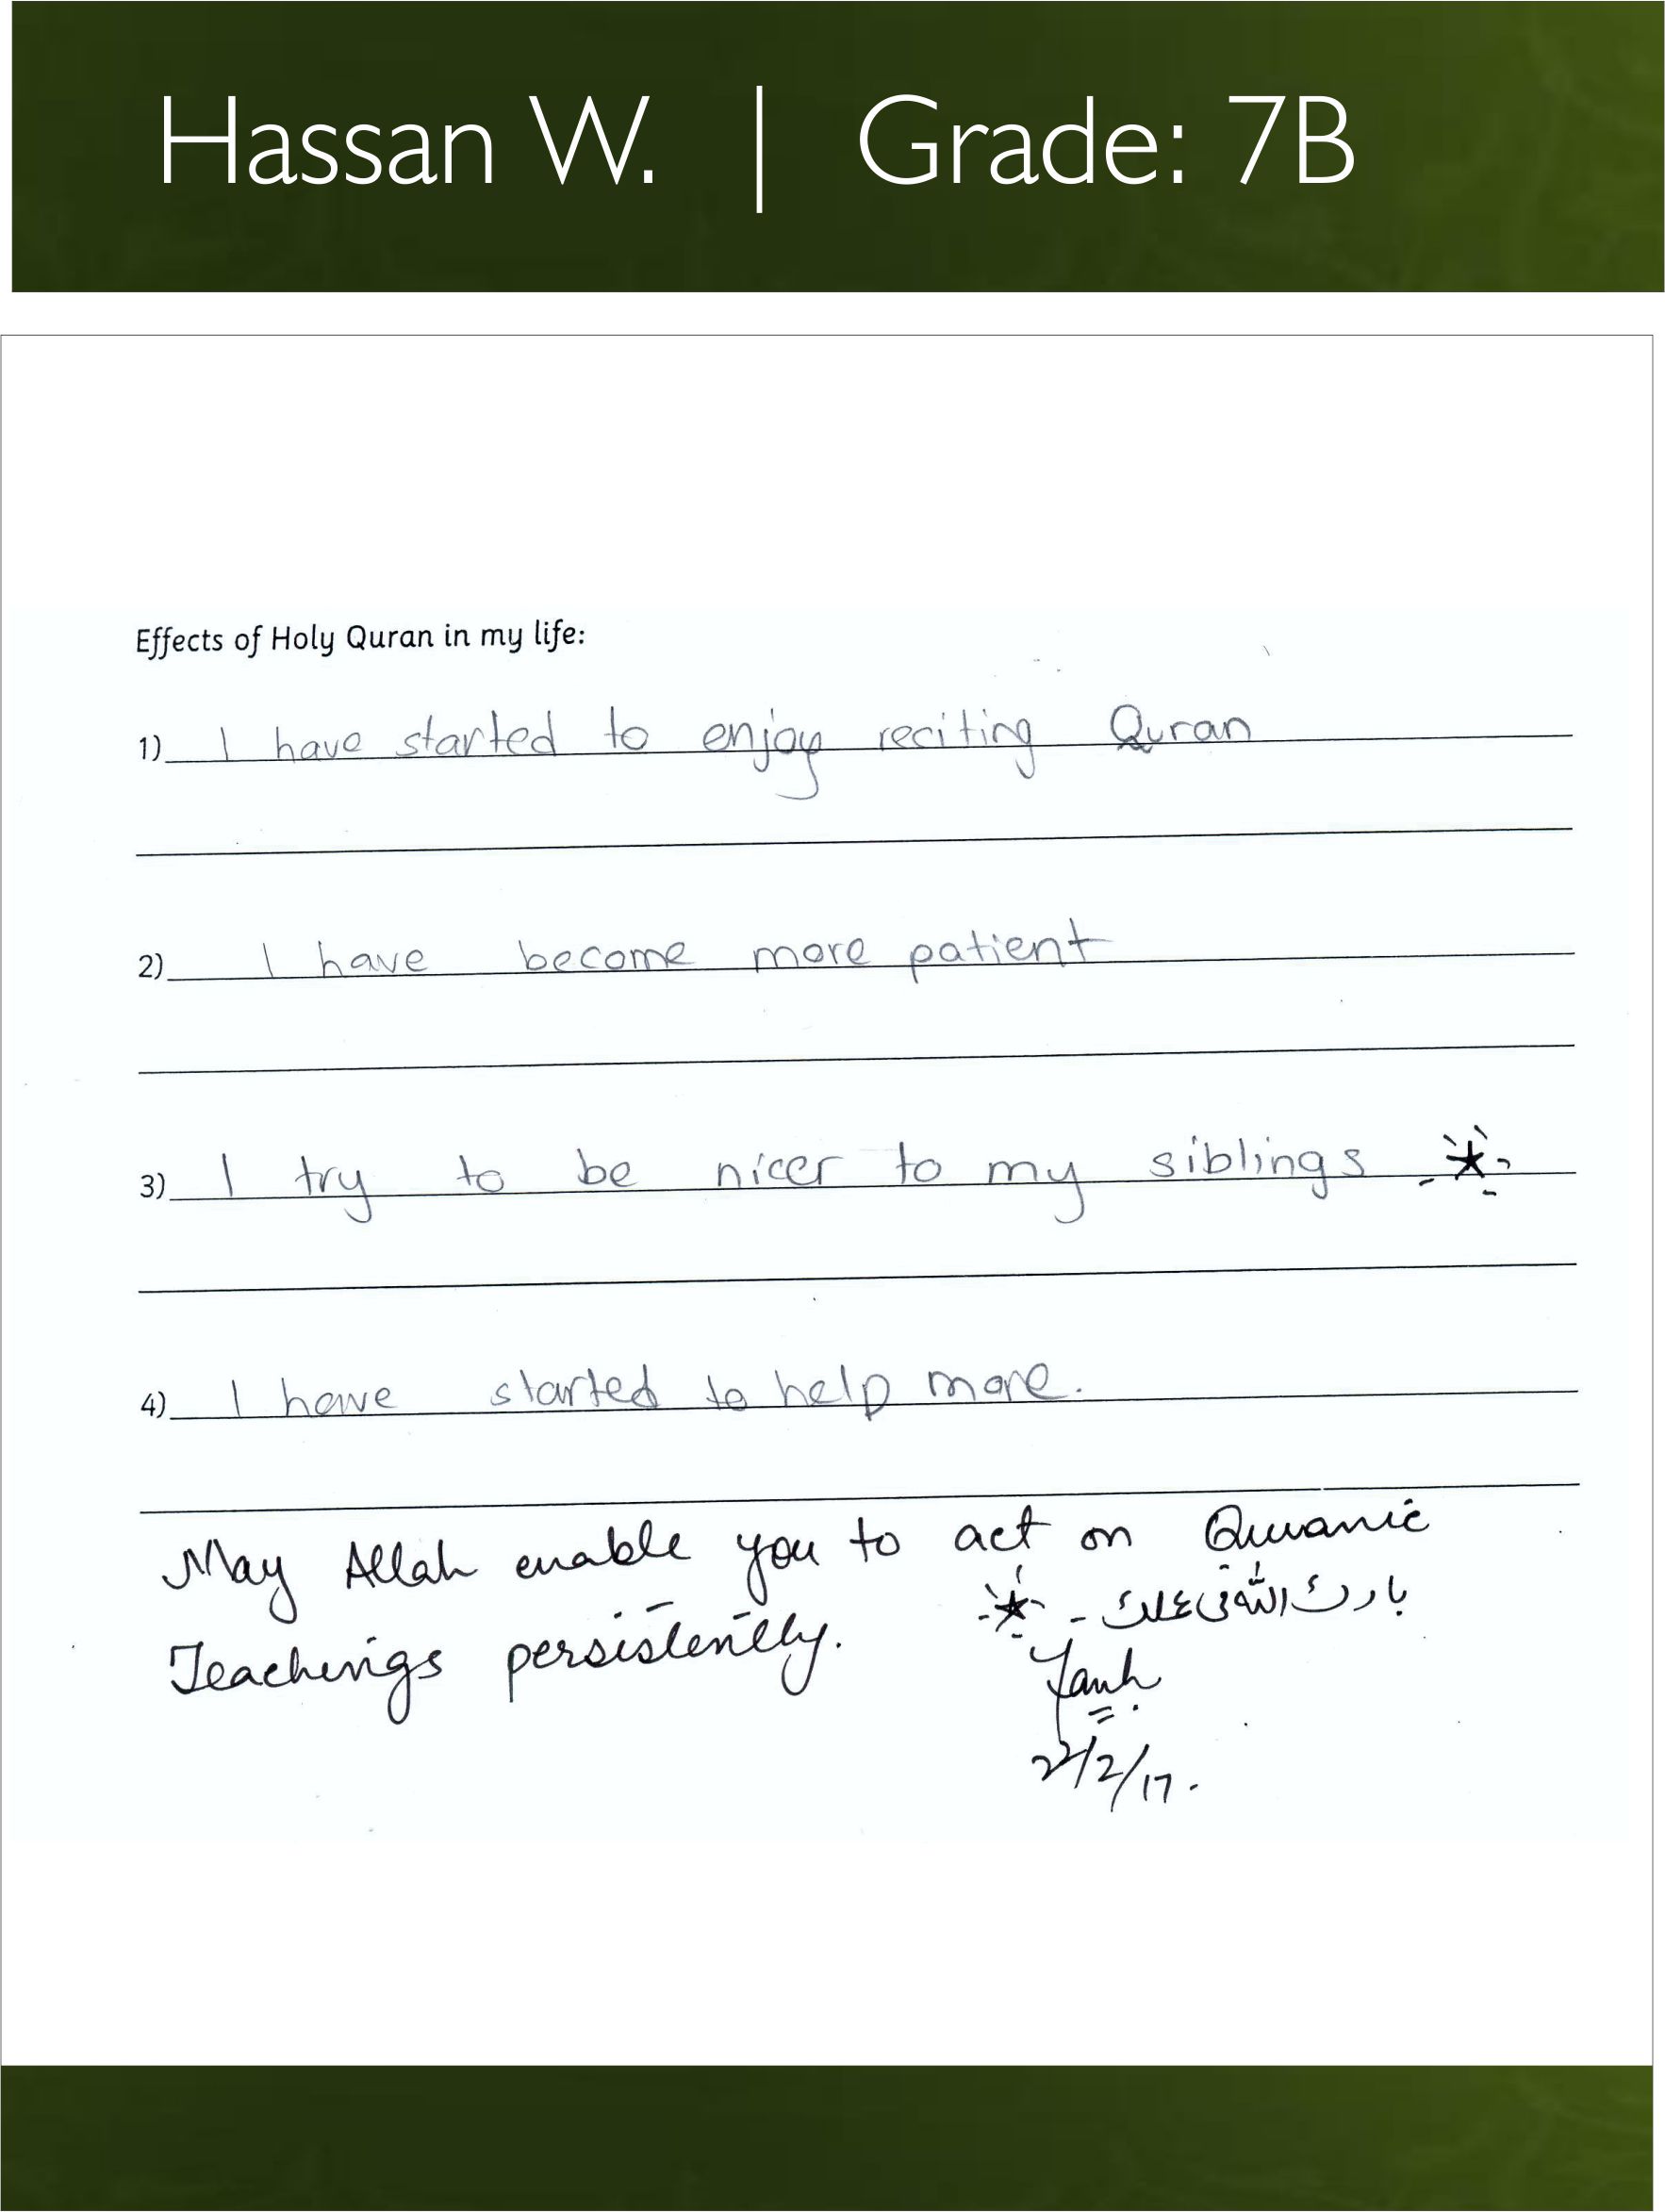 Hassan W. | Grade: 7B
Effects of Holy Quran in my life:
1) I have started to enjoy reciting Quran
2) I have become more patient
3) I try to be nicer to my siblings
4) I have started to help more.
May Allah enable you to act on Quranic
بارك الله في علمك -
Teachings persistently.
22/2/17.